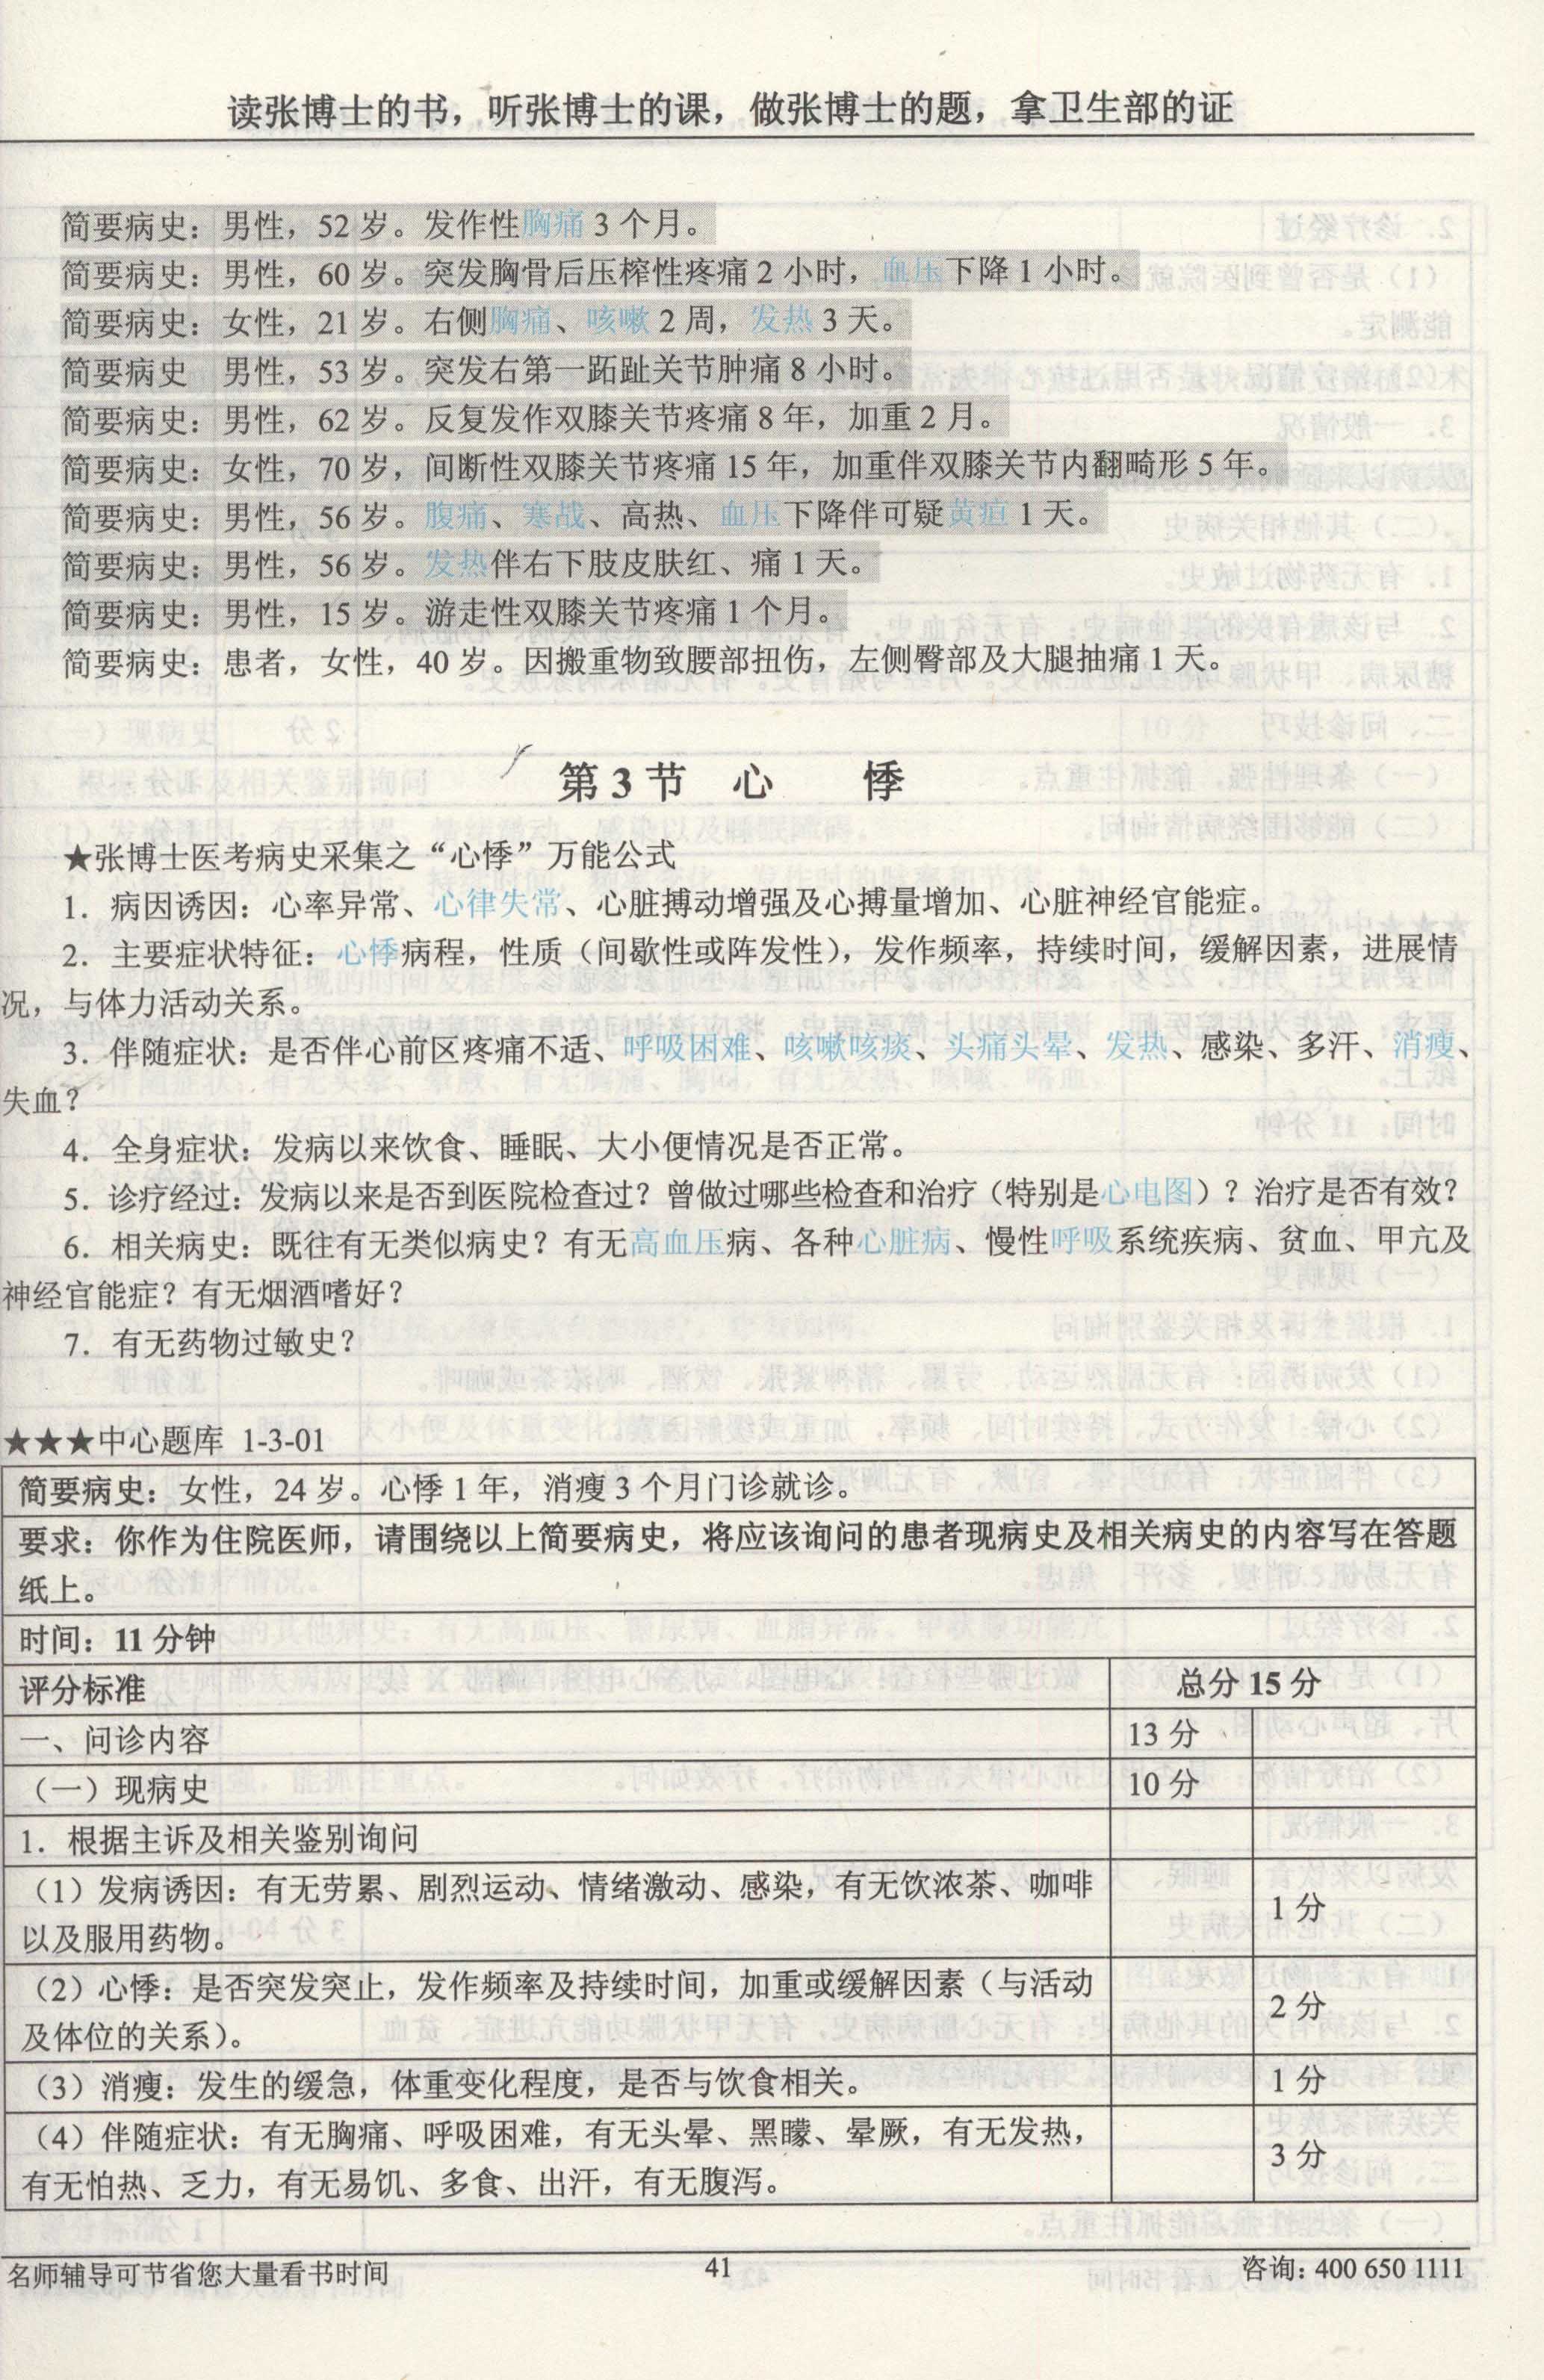 读张博士的书，听张博士的课，做张博士的题，拿卫生部的证
简要病史：男性，52岁。发作性胸痛3个月。
简要病史：男性，60岁。突发胸骨后压榨性疼痛2小时，血压下降1小时。
简要病史：女性，21岁。右侧胸痛、咳嗽2周，发热3天。
简要病史　男性，53岁。突发右第一跖趾关节肿痛8小时。
简要病史：男性，62岁。反复发作双膝关节疼痛8年，加重2月。
简要病史：女性，70岁，间断性双膝关节疼痛15年，加重伴双膝关节内翻畸形5年。
简要病史：男性，56岁。腹痛、寒战、高热、血压下降伴可疑黄疸1天。
简要病史：男性，56岁。发热伴右下肢皮肤红、痛1天。
简要病史：男性，15岁。游走性双膝关节疼痛1个月。
简要病史：患者，女性，40岁。因搬重物致腰部扭伤，左侧臀部及大腿抽痛1天。
第3节　心　　悸
★张博士医考病史采集之“心悸”万能公式
1．病因诱因：心率异常、心律失常、心脏搏动增强及心搏量增加、心脏神经官能症。
2．主要症状特征：心悸病程，性质（间歇性或阵发性），发作频率，持续时间，缓解因素，进展情
况，与体力活动关系。
3．伴随症状：是否伴心前区疼痛不适、呼吸困难、咳嗽咳痰、头痛头晕、发热、感染、多汗、消瘦、
失血？
4．全身症状：发病以来饮食、睡眠、大小便情况是否正常。
5．诊疗经过：发病以来是否到医院检查过？曾做过哪些检查和治疗（特别是心电图）？治疗是否有效？
6．相关病史：既往有无类似病史？有无高血压病、各种心脏病、慢性呼吸系统疾病、贫血、甲亢及
神经官能症？有无烟酒嗜好？
7．有无药物过敏史？
★★★中心题库 1-3-01
简要病史：女性，24岁。心悸1年，消瘦3个月门诊就诊。
要求：你作为住院医师，请围绕以上简要病史，将应该询问的患者现病史及相关病史的内容写在答题
纸上。
时间：11分钟
评分标准　总分15分
一、问诊内容　13分
（一）现病史　10分
1．根据主诉及相关鉴别询问
（1）发病诱因：有无劳累、剧烈运动、情绪激动、感染，有无饮浓茶、咖啡
以及服用药物。　1分
（2）心悸：是否突发突止，发作频率及持续时间，加重或缓解因素（与活动
及体位的关系）。　2分
（3）消瘦：发生的缓急，体重变化程度，是否与饮食相关。　1分
（4）伴随症状：有无胸痛、呼吸困难，有无头晕、黑矇、晕厥，有无发热，
有无怕热、乏力，有无易饥、多食、出汗，有无腹泻。　3分
名师辅导可节省您大量看书时间　41　咨询：400 650 1111